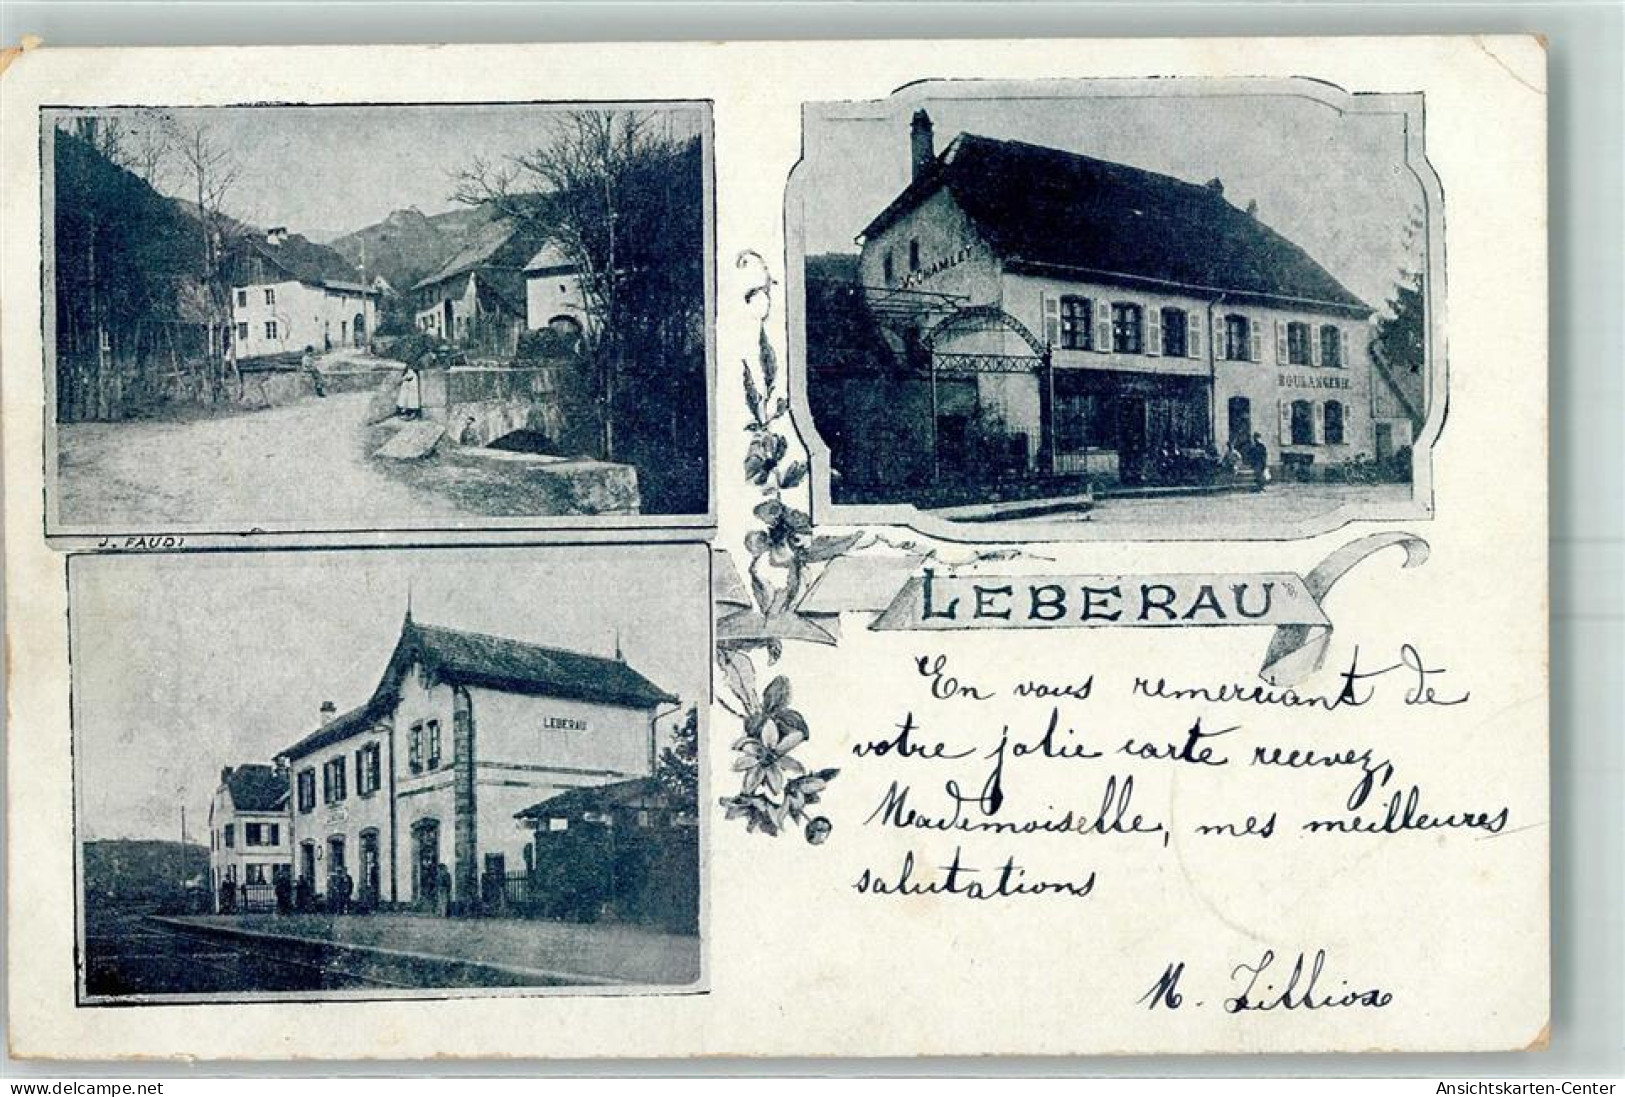 V. CHAMLEY
BOULANGERIE
J. FAUDI
LEBERAU
LEBERAU
En vous remerciant de
votre jolie carte recevez,
Mademoiselle, mes meilleures
salutations
M. Zilliox
Ansichtskarten-Center